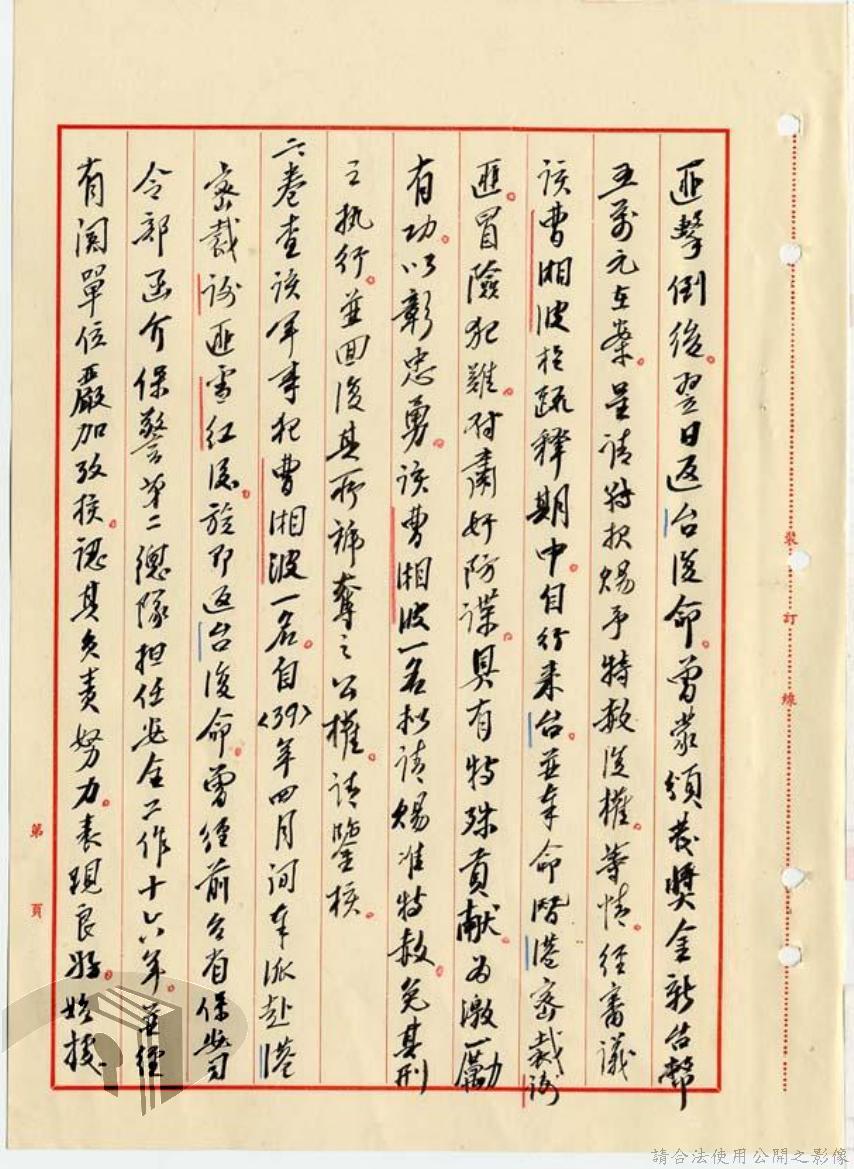 匪擊倒後。翌日返台復命。曾蒙頒發獎金新台幣
五萬元在案。呈請特報賜予特赦復權。等情。經審議
該曹湘波於疏釋期中。自行來台。並奉命潛港密裁謝
匪。冒險犯難。對肅奸防諜。具有特殊貢献。為激勵
有功。以彰忠勇。該曹湘波一名擬請賜准特赦。免其刑
之執行。並回復其所褫奪之公權。請鑒核。
二、卷查該軍事犯曹湘波一名。自〈39〉年四月間奉派赴港
密裁謝匪雪紅後。旋即返台復命。曾經前台省保安司
令部函介保警第二總隊担任安全工作十六年。並經
有関單位嚴加考核。認其負責努力。表現良好。始接
裝訂線
第 頁
請合法使用公開之影像